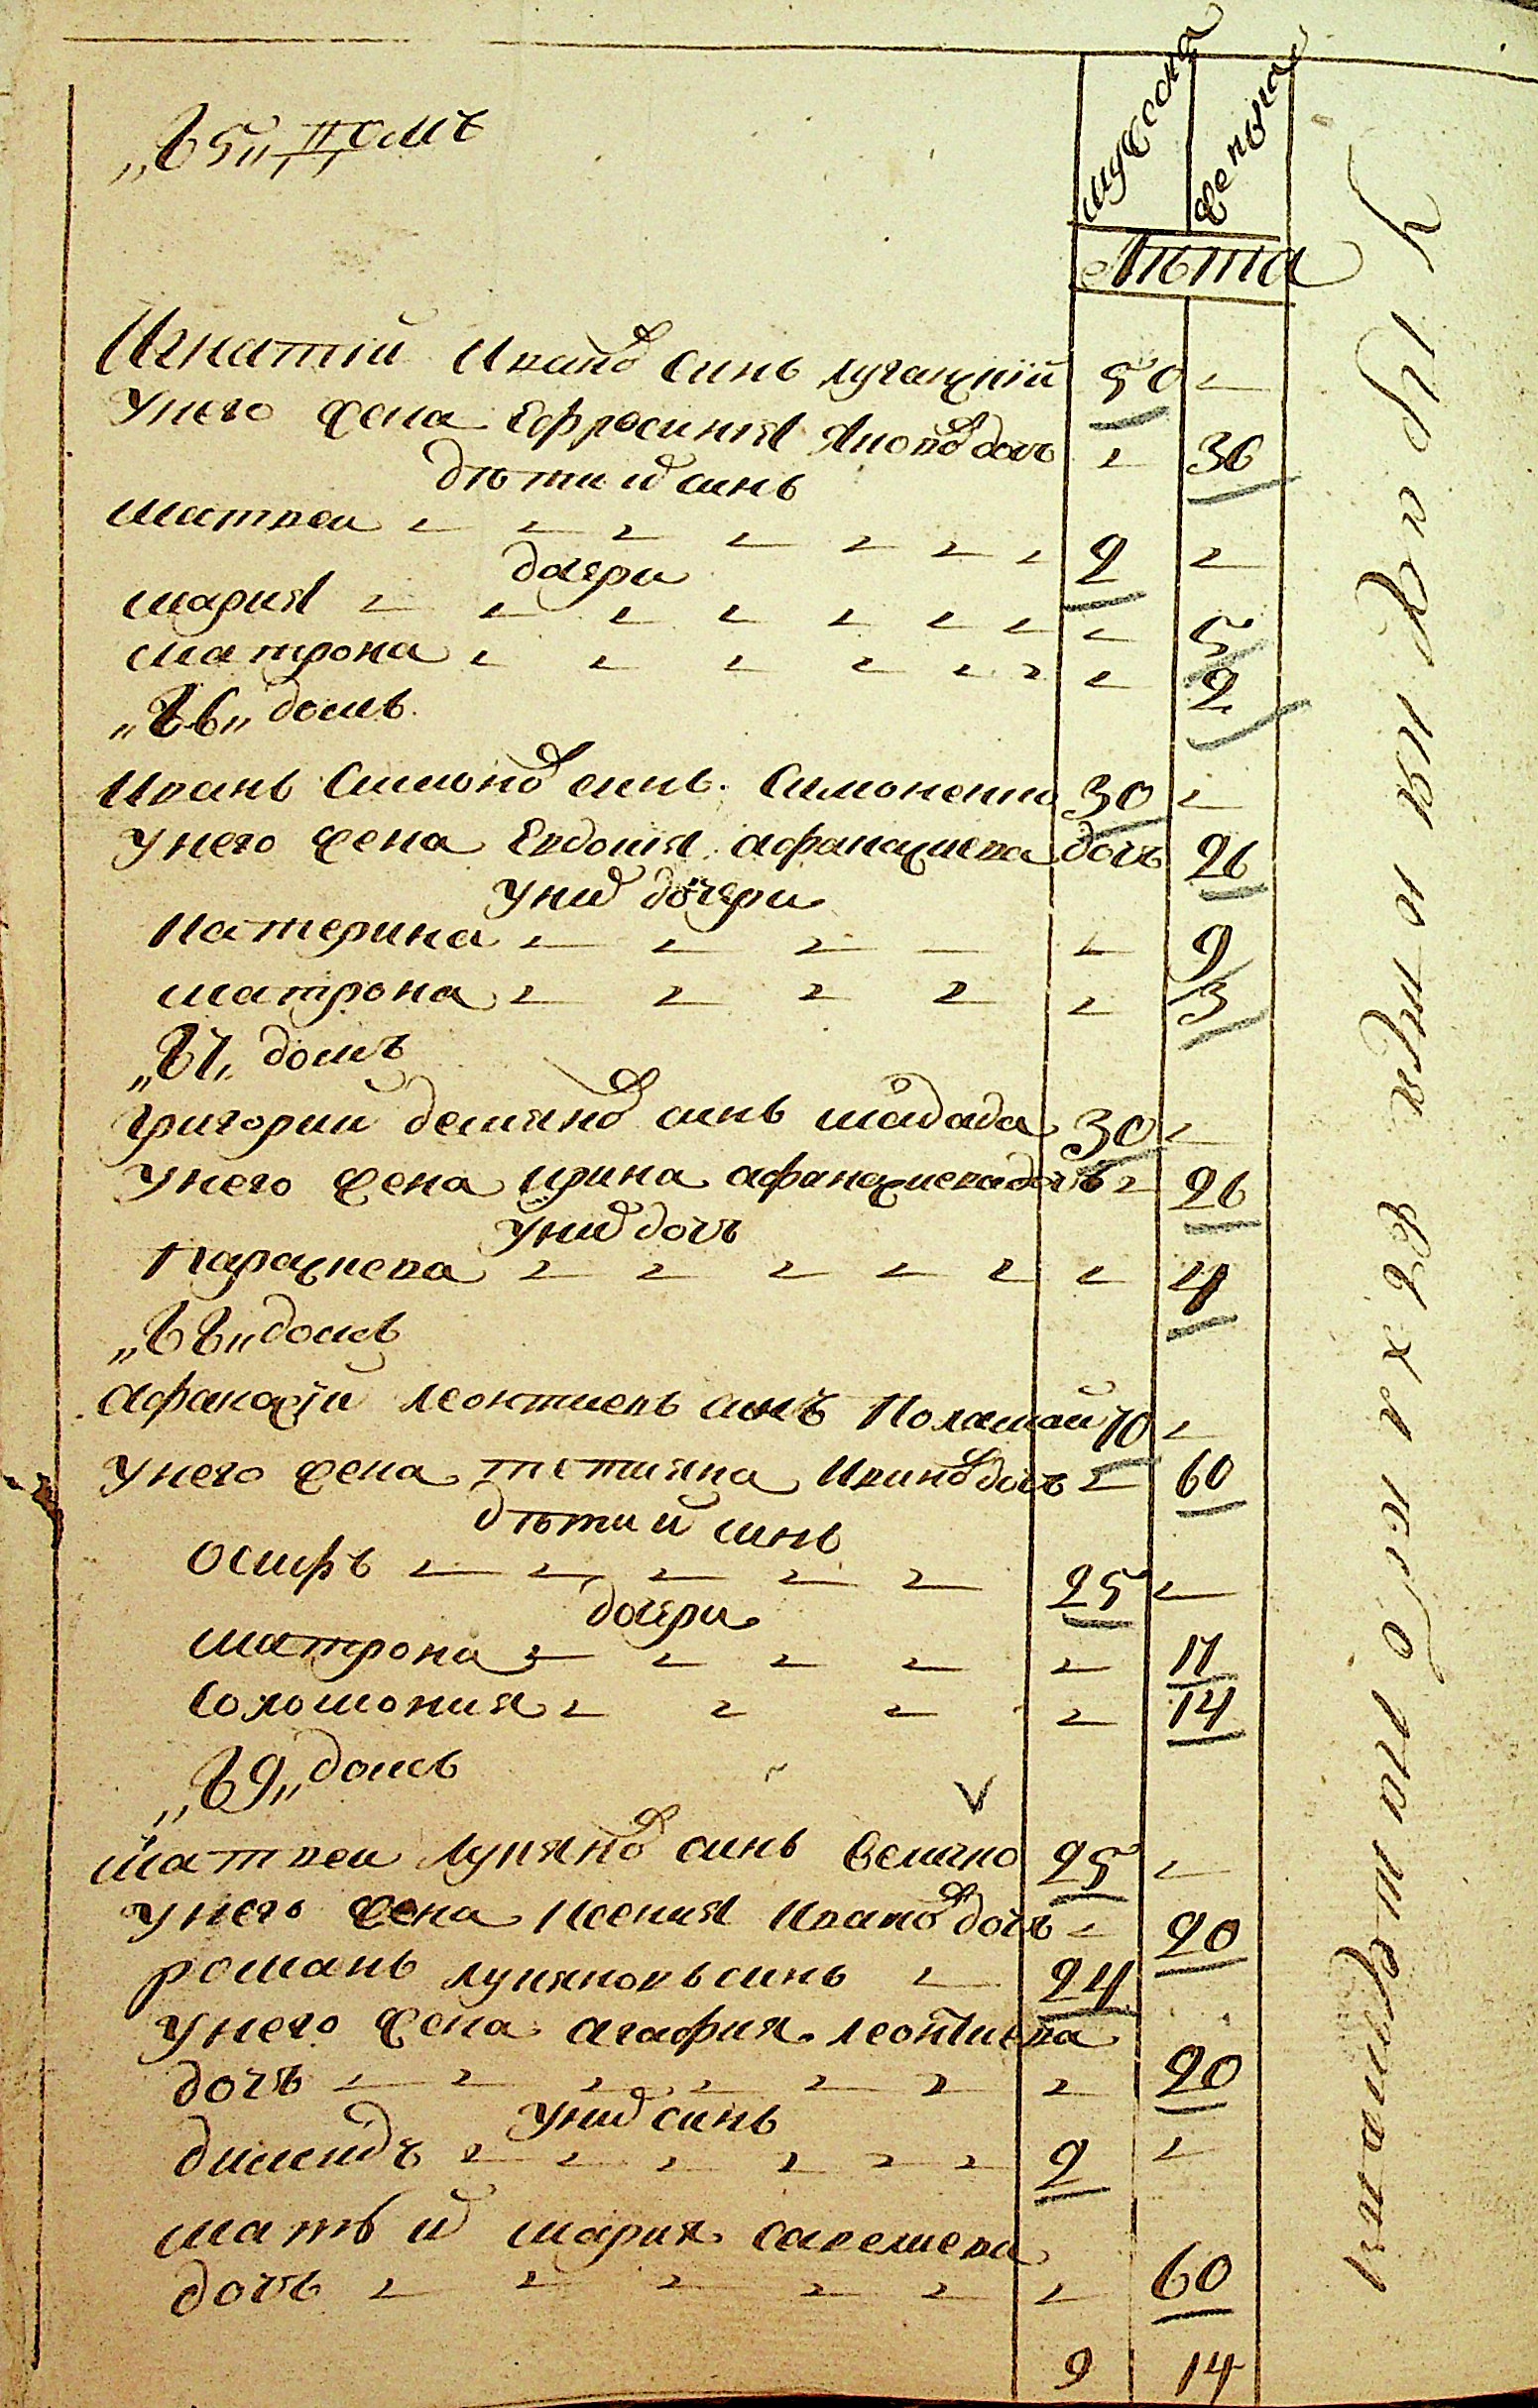 мужеска
женска
лѣта
„85„ Домъ
Игнатий Иванов синъ Лугански 50
Унего жена Ефросиния Яковов дочъ 36
дѣти их синъ
матвеи 2
дочери
мария 5
матрона 2
„86„ домъ
Иванъ Симонов синъ Симоненко 30
Унего жена Евдокия афанасиева дочъ 26
Уних дочери
Катерина 9
матрона 3
„87„ домъ
Григории демянов синъ 30
Унего жена ирина афанасиева дочъ 26
Уних дочъ
Параскева 4
„88„ домъ
афанасий леонтиевъ синъ 70
Унего жена тетияна Иванов дочъ 60
дѣти их синъ
осифъ 25
дочери
матрона 17
Соломония 14
„89„ домъ
матвеи лукянов синъ Величко 25
Унего жена Ксения Иванов дочъ 20
романъ лукяновъ синъ 24
Унего жена агафия леонтиева
дочъ 20
Уних синъ
2
мать их мария савелиева
дочъ 60
9 14